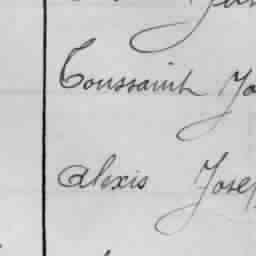 Toussaint
Alexis Josep